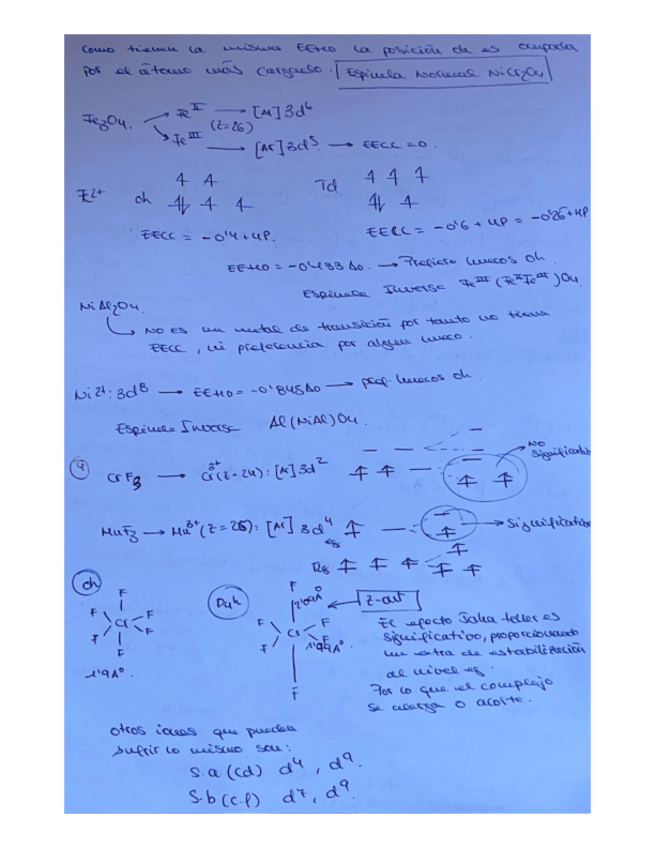 como tienen la misma EEHO la posición oh es ocupada
por el átomo más cargado. Espinela Normal NiCr₂O₄
Fe₃O₄. Fe^II → [Ar] 3d⁶
(Z=26)
Fe^III → [Ar] 3d⁵ → EECC = 0.
Fe²⁺ Oh Td
EECC = -0'4 + 4P. EECC = -0'6 + 4P = -0'26 + 4P
EEHO = -0'133 Δo. → Prefiere huecos Oh.
Espinela Inversa Fe^III (Fe^II Fe^III) O₄.
NiAl₂O₄.
No es un metal de transición por tanto no tiene
EECC, ni preferencia por algún hueco.
Ni²⁺: 3d⁸ → EEHO = -0'845 Δo → pref. huecos Oh.
Espinela Inversa Al(NiAl)O₄.
④ CrF₃ → Cr³⁺ (Z=24): [Ar] 3d² NO significativo
MnF₃ → Mn³⁺ (Z=25): [Ar] 3d⁴ Significativo
eg
T2g
Oh D4h z-out
F F F F F F Cr 1'9 A°
F F F F F F Cr 2'09 A° 1'99 A°.
El efecto Jahn teller es
significativo, proporcionando
un extra de estabilización
al nivel eg.
Por lo que el complejo
se alarga o acorte.
Otros iones que pueden
sufrir lo mismo son:
S.a (cd) d⁴, d⁹.
S.b (c.f) d⁷, d⁹